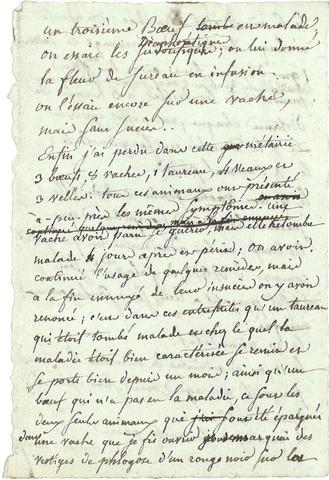 un troisieme Bœuf tombe en malade,
on essaie les Diaphorétique
sudorifique; on lui donne
la fleur de sureau en infusion.
on l'essaie encore sur une vache,
mais sans succès..
Enfin j'ai perdu dans cette metairie
3 bœufs 8 vaches, 1 taureau, 4 Veaux et
3 Velles. tous ces animaux ont présenté
a-peu-près les même symptome. une
vache avoit paru se guérir, mais elle retombe
malade & 4 jour après en périt; on avoit
continué l'usage de quelques remèdes, mais
a la fin ennuyé de leur insuccès on y avoit
renoncé; c'est dans ces entrefaites qu'un taureau
qui étoit tombé malade et chez le quel la
maladie étoit bien caractérisée se remit et
se porte bien depuis un mois; ainsi qu'un
bœuf qui n'a pas eu la maladie, ce sont les
deux seuls animaux qui ont été épargnés
dans une vache que je fis ouvrir je remarquai des
vestiges de phlogose d'un rouge noir sur les